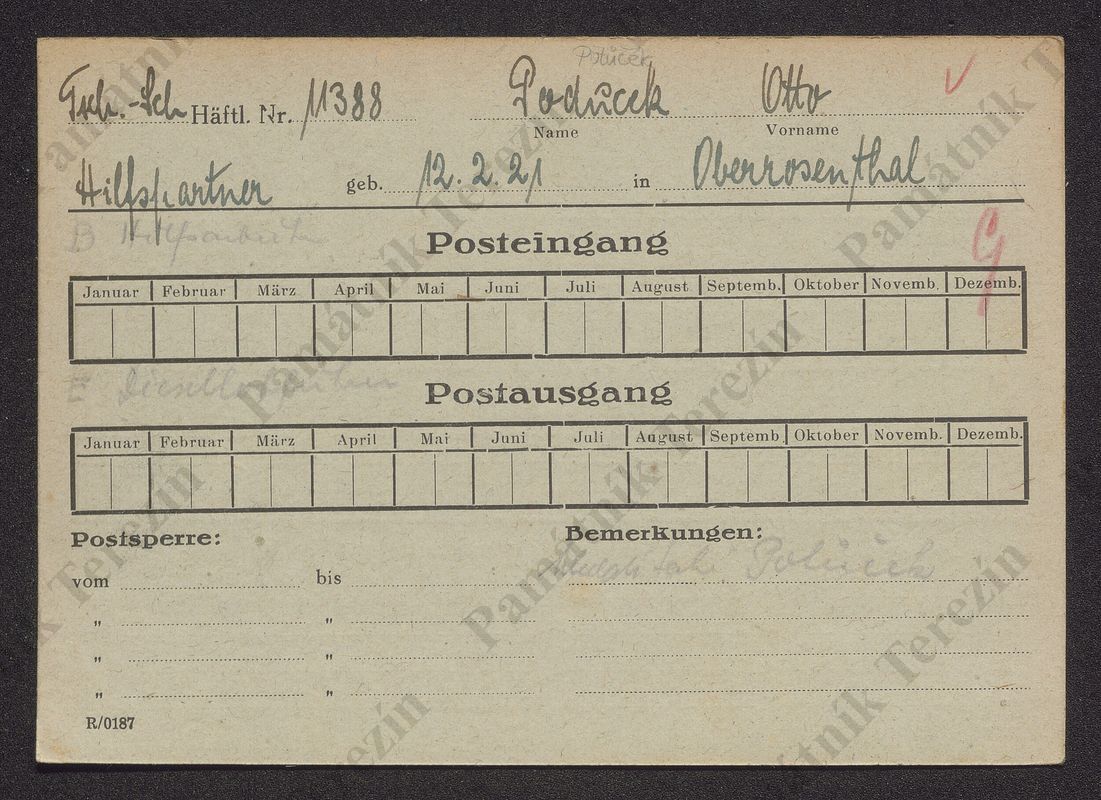 Potůček
Tsch.-Sch Häftl. Nr. 11388 Podůcek Otto
Name Vorname
Hilfspartner geb. 12.2.21 in Oberrosenthal
B Hilfsarbeiter
Posteingang
Januar Februar März April Mai Juni Juli August Septemb. Oktober Novemb. Dezemb.
G
E
Postausgang
Januar Februar März April Mai Juni Juli August Septemb. Oktober Novemb. Dezemb.
Postsperre: Bemerkungen:
vom bis Potůček
" "
" "
" "
R/0187
Památník Terezín